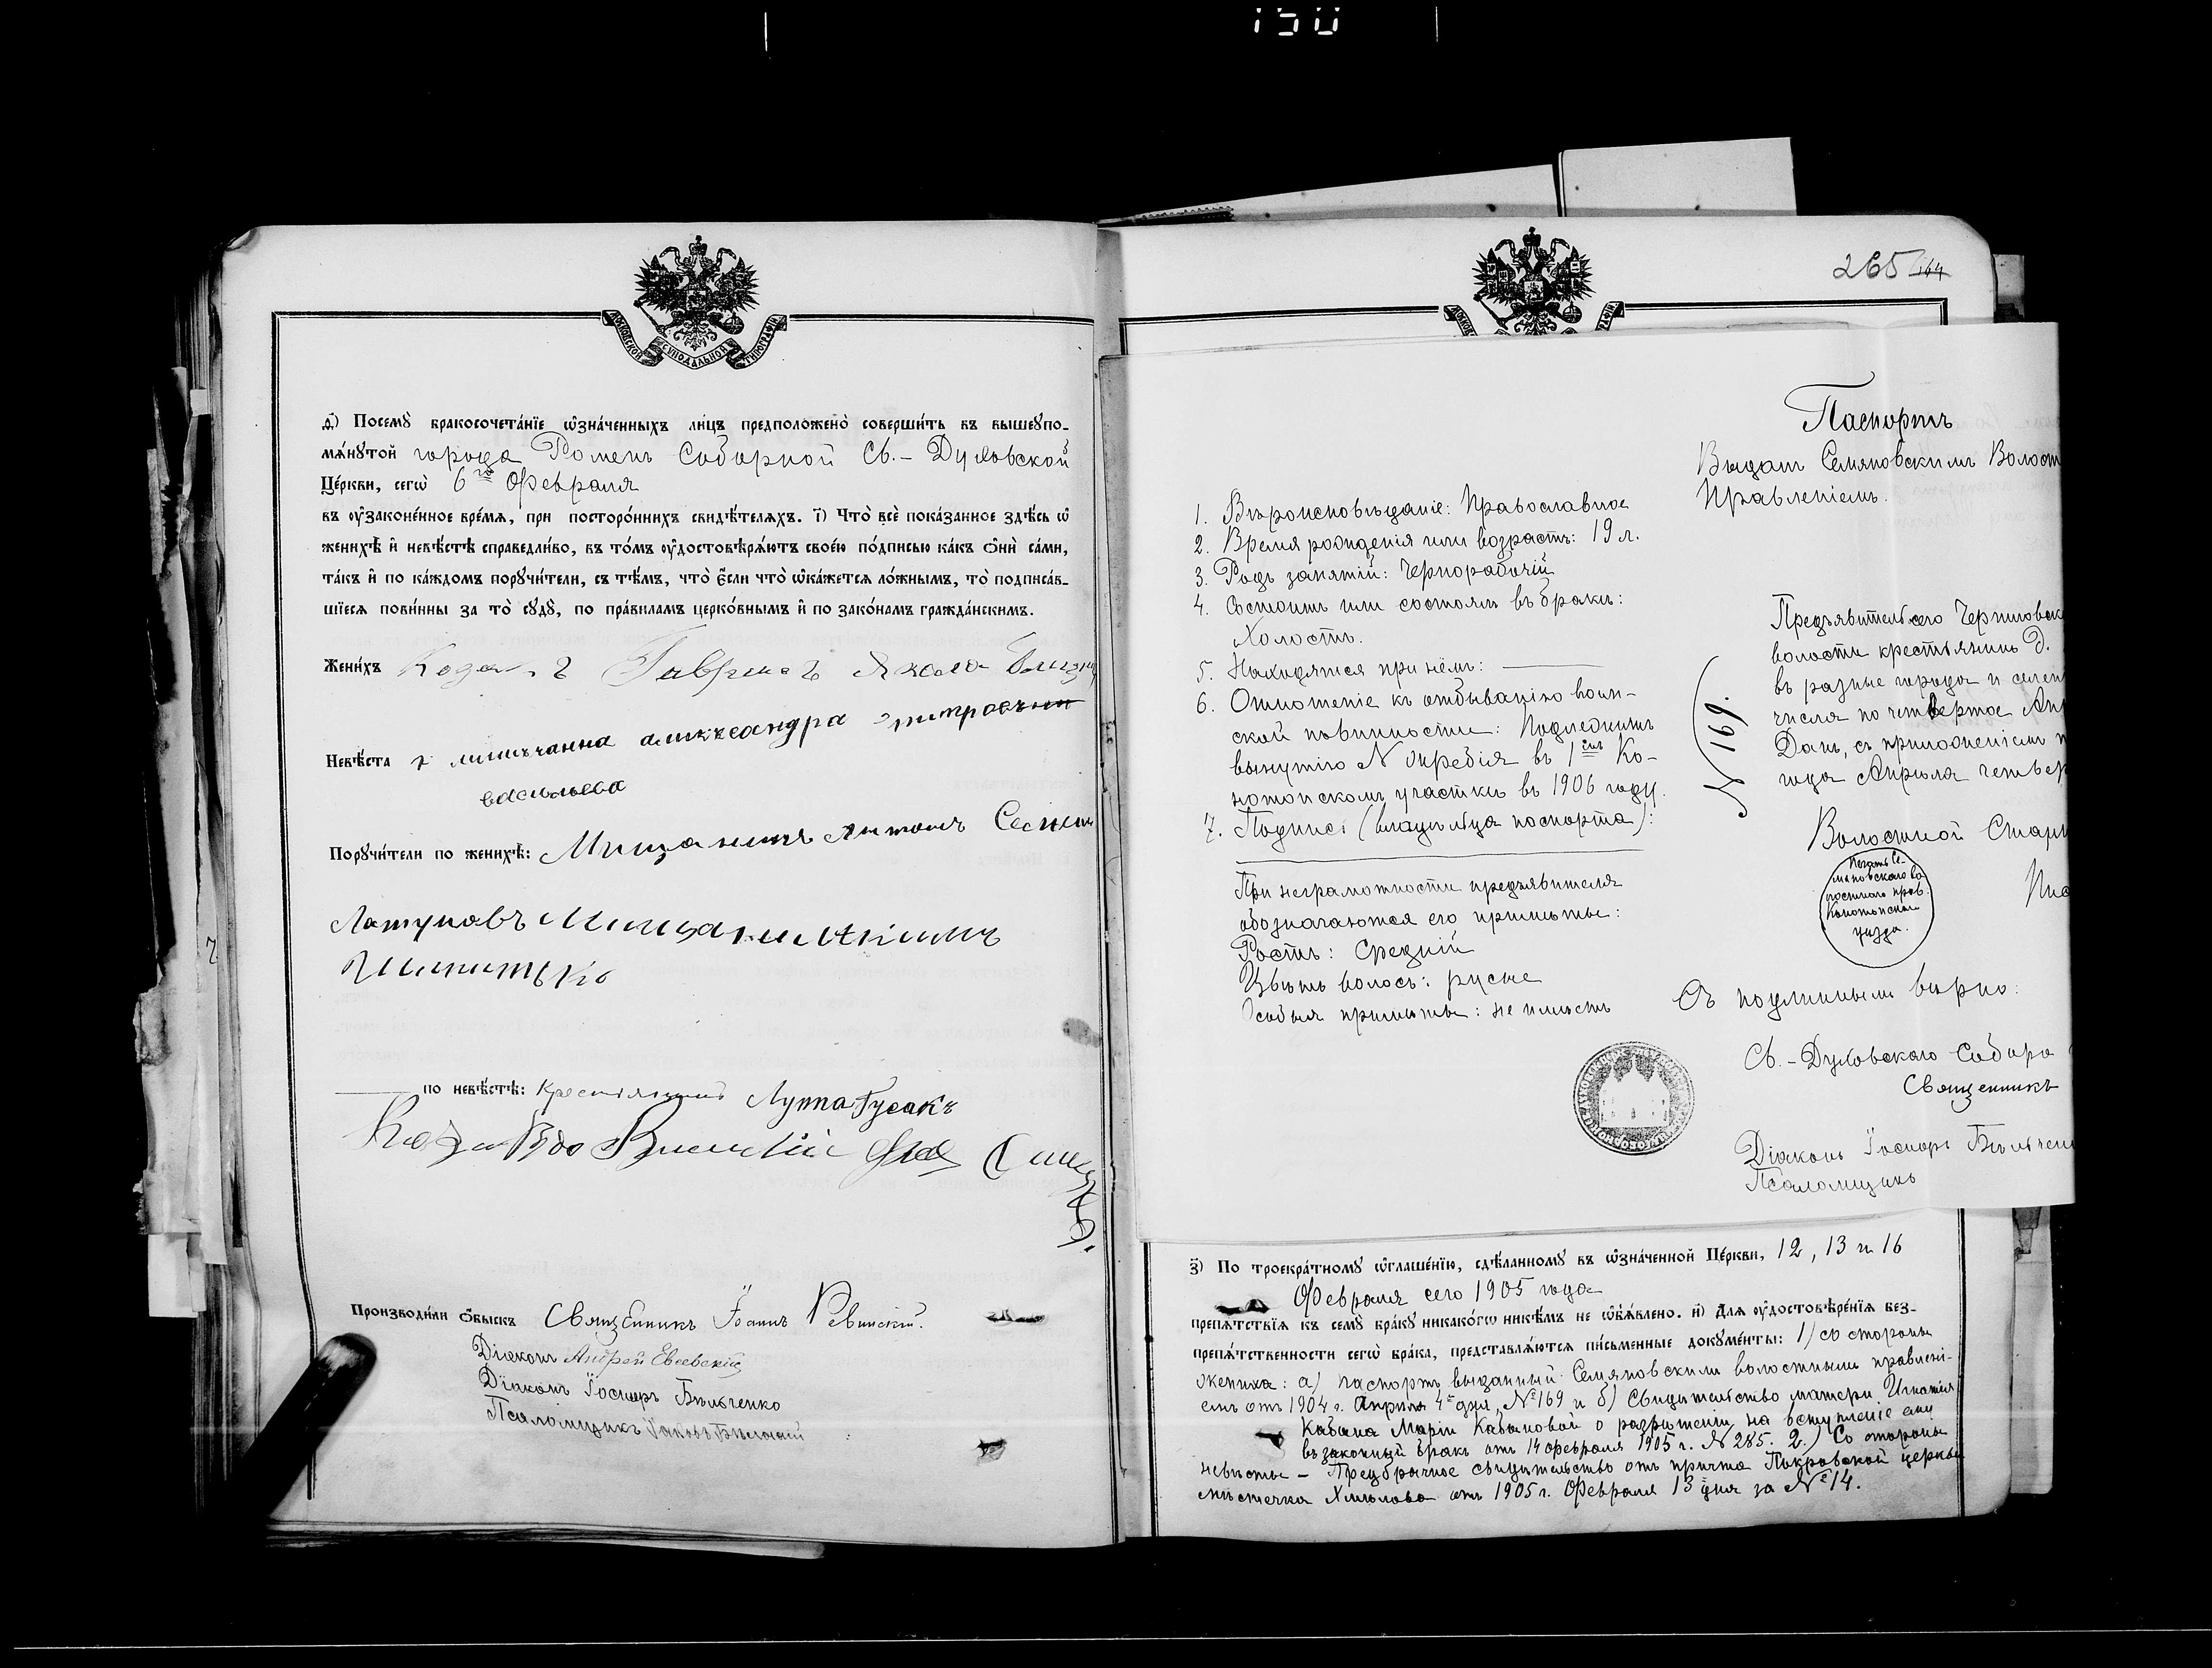 150
МОСКОВСКОЙ СѴНОДАЛЬНОЙ ТИПОГРАФІИ
д҃) Посемꙋ̀ бракосочета́нїе ѡ҆зна́ченныхъ ли́цъ предположено̀ соверши́ть въ вышеꙋпо-
мѧ́нꙋтой города Роменъ Соборной Св.-Духовской
Це́ркви, сегѡ̀ 6го Февраля
въ ᲂу҆законе́нное вре́мѧ, при посторо́ннихъ свидѣ́телѧхъ. і҃) Что̀ всѐ пока́занное здѣ́сь ѡ҆
женихѣ̀ и҆ невѣ́стѣ справедли́во, въ то́мъ ᲂу҆достовѣрѧ́ютъ свое́ю по́дписью ка́къ ѻ҆нѝ са́ми,
та́къ и҆ по ка́ждомъ порꙋчи́тели, съ тѣ́мъ, что̀ є҆́сли что̀ ѡ҆ка́жетсѧ ло́жнымъ, то̀ подписа́в-
шїесѧ пови́нны за то̀ сꙋдꙋ̀, по пра́виламъ церко́внымъ и҆ по зако́намъ гражда́нскимъ.
Жени́хъ Козакъ Гавриилъ
Невѣ́ста
васильева
Порꙋчи́тели по женихѣ̀: Мищанинъ Антонъ
Латуновъ
по невѣ́стѣ: крестьянинъ Лука Гусакъ
Производи́ли ѻ҆́быскъ Священникъ Іоаннъ Ревинскій.
Діаконъ Андрей Евсевскій
Діаконъ Іосифъ Бѣльченко
Псаломщикъ Іаковъ
265 164
Паспортъ
Выданъ Семяновскимъ Волост
Правленіемъ.
1. Вѣроисповѣданіе: Православное
2. Время рожденія или возрастъ: 19 л.
3. Родъ занятій: Чернорабочій
4. Состоитъ или состоялъ въ бракѣ:
Холостъ.
5. Находятся при нёмъ: ———
6. Отношеніе къ отбыванію воин-
ской повинности: Подлежитъ
вынутію № жребія въ 1емъ Ко-
нотопскомъ участкѣ въ 1906 году.
7. Подпись (владѣльца паспорта):
При неграмотности предъявителя
обозначаются его примѣты:
Ростъ: Средній
Цвѣтъ волосъ: русые
Особыя примѣты: не имѣетъ
Предъявитель сего
волости крестьянинъ д.
въ разные города и селен
числа по четвертое Апр
Данъ, съ приложеніемъ п
года Апрѣля четвер
№ 169.
Волостной Стар
Печать Се-
мяновскаго во-
лостнаго прав.
Конотопскаго
уѣзда.
Пис
Съ подлиннымъ вѣрно:
Св.-Духовскаго Собора
Священникъ
Діаконъ Іосифъ Бѣльчен
Псаломщикъ
з҃) По троекра́тномꙋ ѡ҆глаше́нїю, сдѣ́ланномꙋ въ ѡ҆зна́ченной Це́ркви, 12, 13 и 16
Февраля сего 1905 года
препѧ́тствїѧ къ семꙋ̀ бра́кꙋ никако́гѡ никѣ́мъ не ѡ҆б̾ѧ́влено. и҃) Для ᲂу҆достовѣре́нїѧ без-
препѧ́тственности сегѡ̀ бра́ка, представлѧ́ютсѧ пи́сьменные докꙋме́нты: 1) со стороны
жениха: а) паспортъ выданный Семяновскимъ волостнымъ правлені-
емъ отъ 1904 г. Апрѣля 4го дня, №169 и б) Свидѣтельство матери Игнатія
Кабана Маріи Кабановой о разрѣшеніи на вступленіе ему
въ законный бракъ отъ 14 февраля 1905 г. № 285. 2.) Со стороны
невѣсты – Предбрачное свидѣтельство отъ причта Покровской церкви
мѣстечка Хмѣлова отъ 1905 г. Февраля 13 дня за №14.